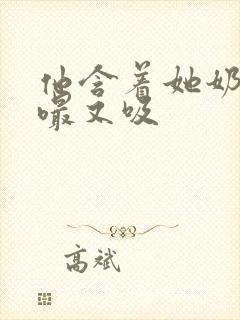 他含着她奶
嘬又吸
高斌